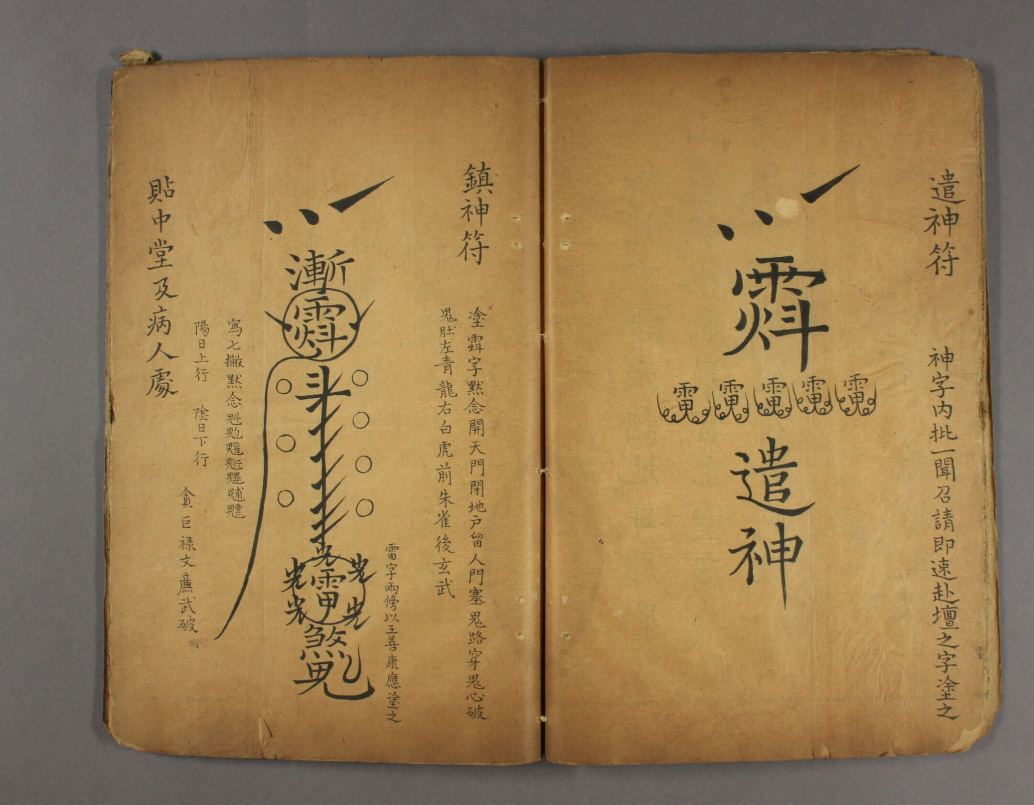 遣神符
神字內批一聞召請即速赴壇之字塗之
雷雷雷雷雷
遣神
鎮神符
塗
字默念開天門閉地戶留人門塞鬼路穿鬼心破
鬼肚左青龍右白虎前朱雀後玄武
雷字兩傍以王善康應塗之
漸
斗
雷
寫七撇默念
陽日上行 陰日下行
貪巨祿文廉武破
貼中堂及病人處